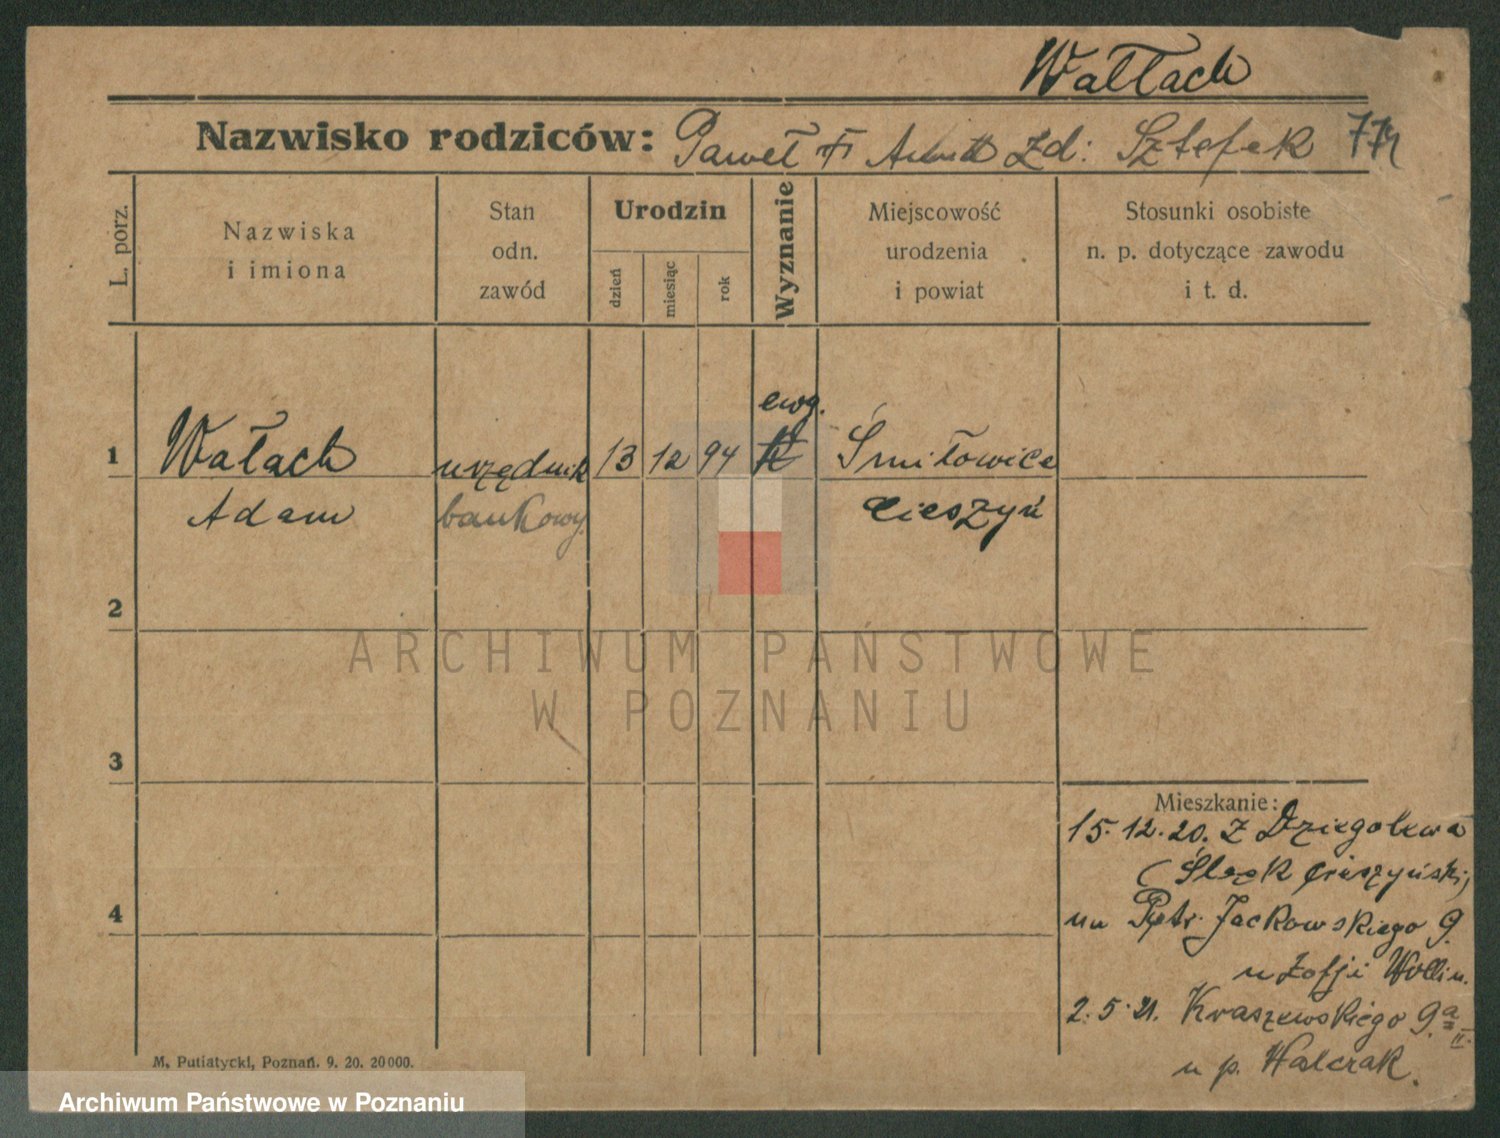 Wałłach
Nazwisko rodziców: Paweł zd: Sztefek
L. porz.
Nazwiska
i imiona
Stan
odn.
zawód
Urodzin
dzień
miesiąc
rok
Wyznanie
Miejscowość
urodzenia
i powiat
Stosunki osobiste
n. p. dotyczące zawodu
i t. d.
ewg.
1 Wałach urzędnik 13 12 94 Śmiłowice
Adam bankowy. Cieszyń
2
ARCHIWUM PAŃSTWOWE
W POZNANIU
3
Mieszkanie:
15.12.20. z Dzięgolewa
(Śląsk Cieszyński)
4
na Jackowskiego 9.
u Zofji Wollin.
2.5.21. Kraszewskiego 9a II.
u p. Walczak.
M. Putiatycki, Poznań. 9. 20. 20000.
Archiwum Państwowe w Poznaniu